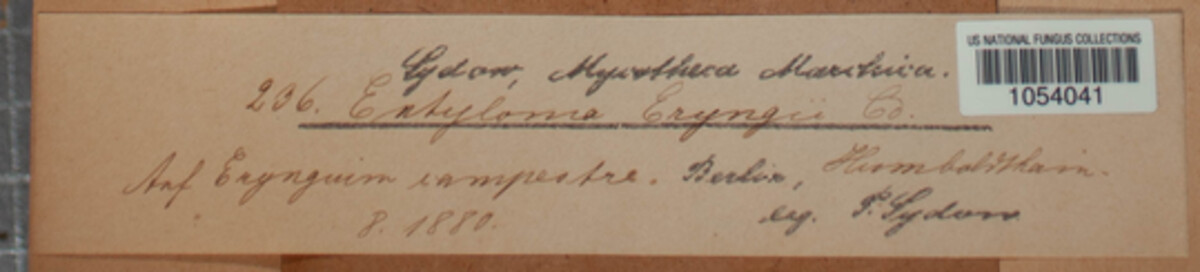 Sydow, Mycotheca Marchica.
US NATIONAL FUNGUS COLLECTIONS
1054041
236. Entyloma Eryngii
Auf Eryngium campestre. Berlin, Humboldthain.
8. 1880. leg. P. Sydow